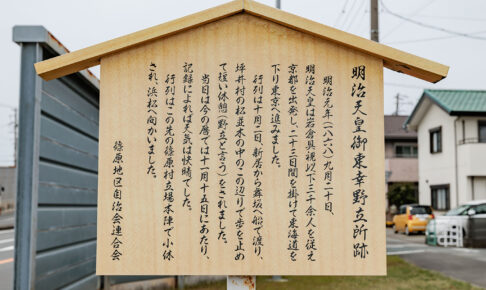 明治天皇御東幸野立所跡
明治元年(一八六八)九月二十日、
明治天皇は岩倉具視以下三千余人を従え
京都を出発し、二十三日間を掛けて東海道を
下り東京へ進みました。
行列は十月二日、新居から舞坂へ船で渡り、
坪井村の松並木の中のこの辺りで歩を止め
て短い休憩(野立と言う)をされました。
当日は今の暦では十一月十五日にあたり、
記録によれば天気は快晴でした。
行列はこの先の篠原村立場本陣で小休
され、浜松へ向かいました。
篠原地区自治会連合会